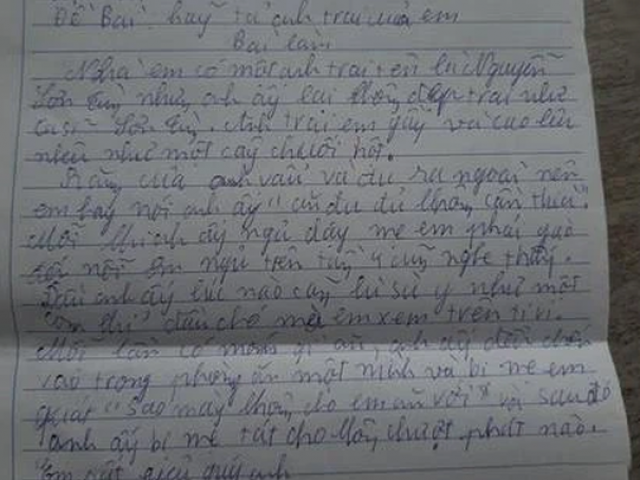 Đề Bài: hãy tả anh trai của em
Bài làm
Nhà em có một anh trai tên là Nguyễn
Sơn Tùng nhưng anh ấy lại không đẹp trai như
ca sĩ Sơn Tùng. Anh trai em gầy và cao lêu
nghêu như một cây chuối hột.
Răng của anh vẩu và đưa ra ngoài nên
em hay nói anh ấy "ăn đu đủ không cần thìa".
Mỗi khi anh ấy ngủ dậy mẹ em phải gào
tới nỗi em ngủ trên tầng 4 cũng nghe thấy.
Đầu anh ấy lúc nào cũng lù xù y như một
con đầu chó mà em xem trên ti vi.
Mỗi lần có món gì ăn, anh ấy đều
vào trong phòng ăn một mình và bị mẹ em
quát "sao mày không cho em ăn với" và sau đó
anh ấy bị mẹ tát cho không trượt phát nào.
Em rất quý anh